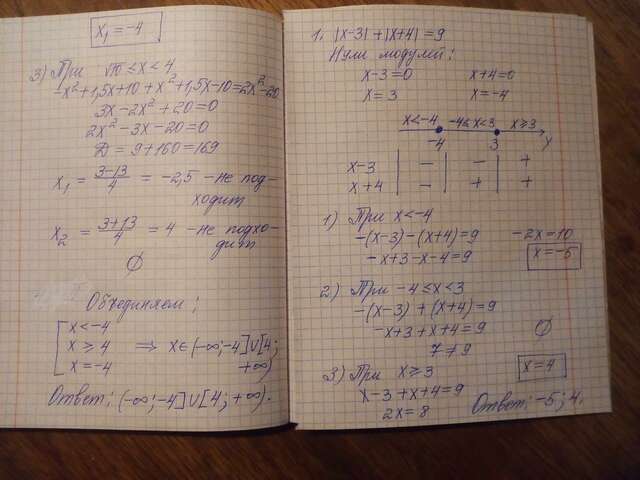 x₁ = -4
3) При √10 ≤ x < 4
-x² + 1,5x + 10 + x² + 1,5x - 10 = 2x² - 20
3x - 2x² + 20 = 0
2x² - 3x - 20 = 0
D = 9 + 160 = 169
x₁ = (3-13)/4 = -2,5 - не под-
ходит
x₂ = (3+13)/4 = 4 - не подхо-
дит
∅
Объединяем:
[ x < -4
x ≥ 4 ⇒ x ∈ (-∞; -4] ∪ [4;
x = -4 +∞)
Ответ: (-∞; -4] ∪ [4; +∞).
1. |x-3| + |x+4| = 9
Нули модулей:
x - 3 = 0 x + 4 = 0
x = 3 x = -4
x < -4 -4 ≤ x < 3 x ≥ 3
-4 3 x
x-3 | - | - | +
x+4 | - | + | +
1) При x < -4
-(x-3) - (x+4) = 9 -2x = 10
-x + 3 - x - 4 = 9 x = -5
2) При -4 ≤ x < 3
-(x-3) + (x+4) = 9
-x + 3 + x + 4 = 9 ∅
7 ≠ 9
3) При x ≥ 3 x = 4
x - 3 + x + 4 = 9
2x = 8 Ответ: -5; 4.